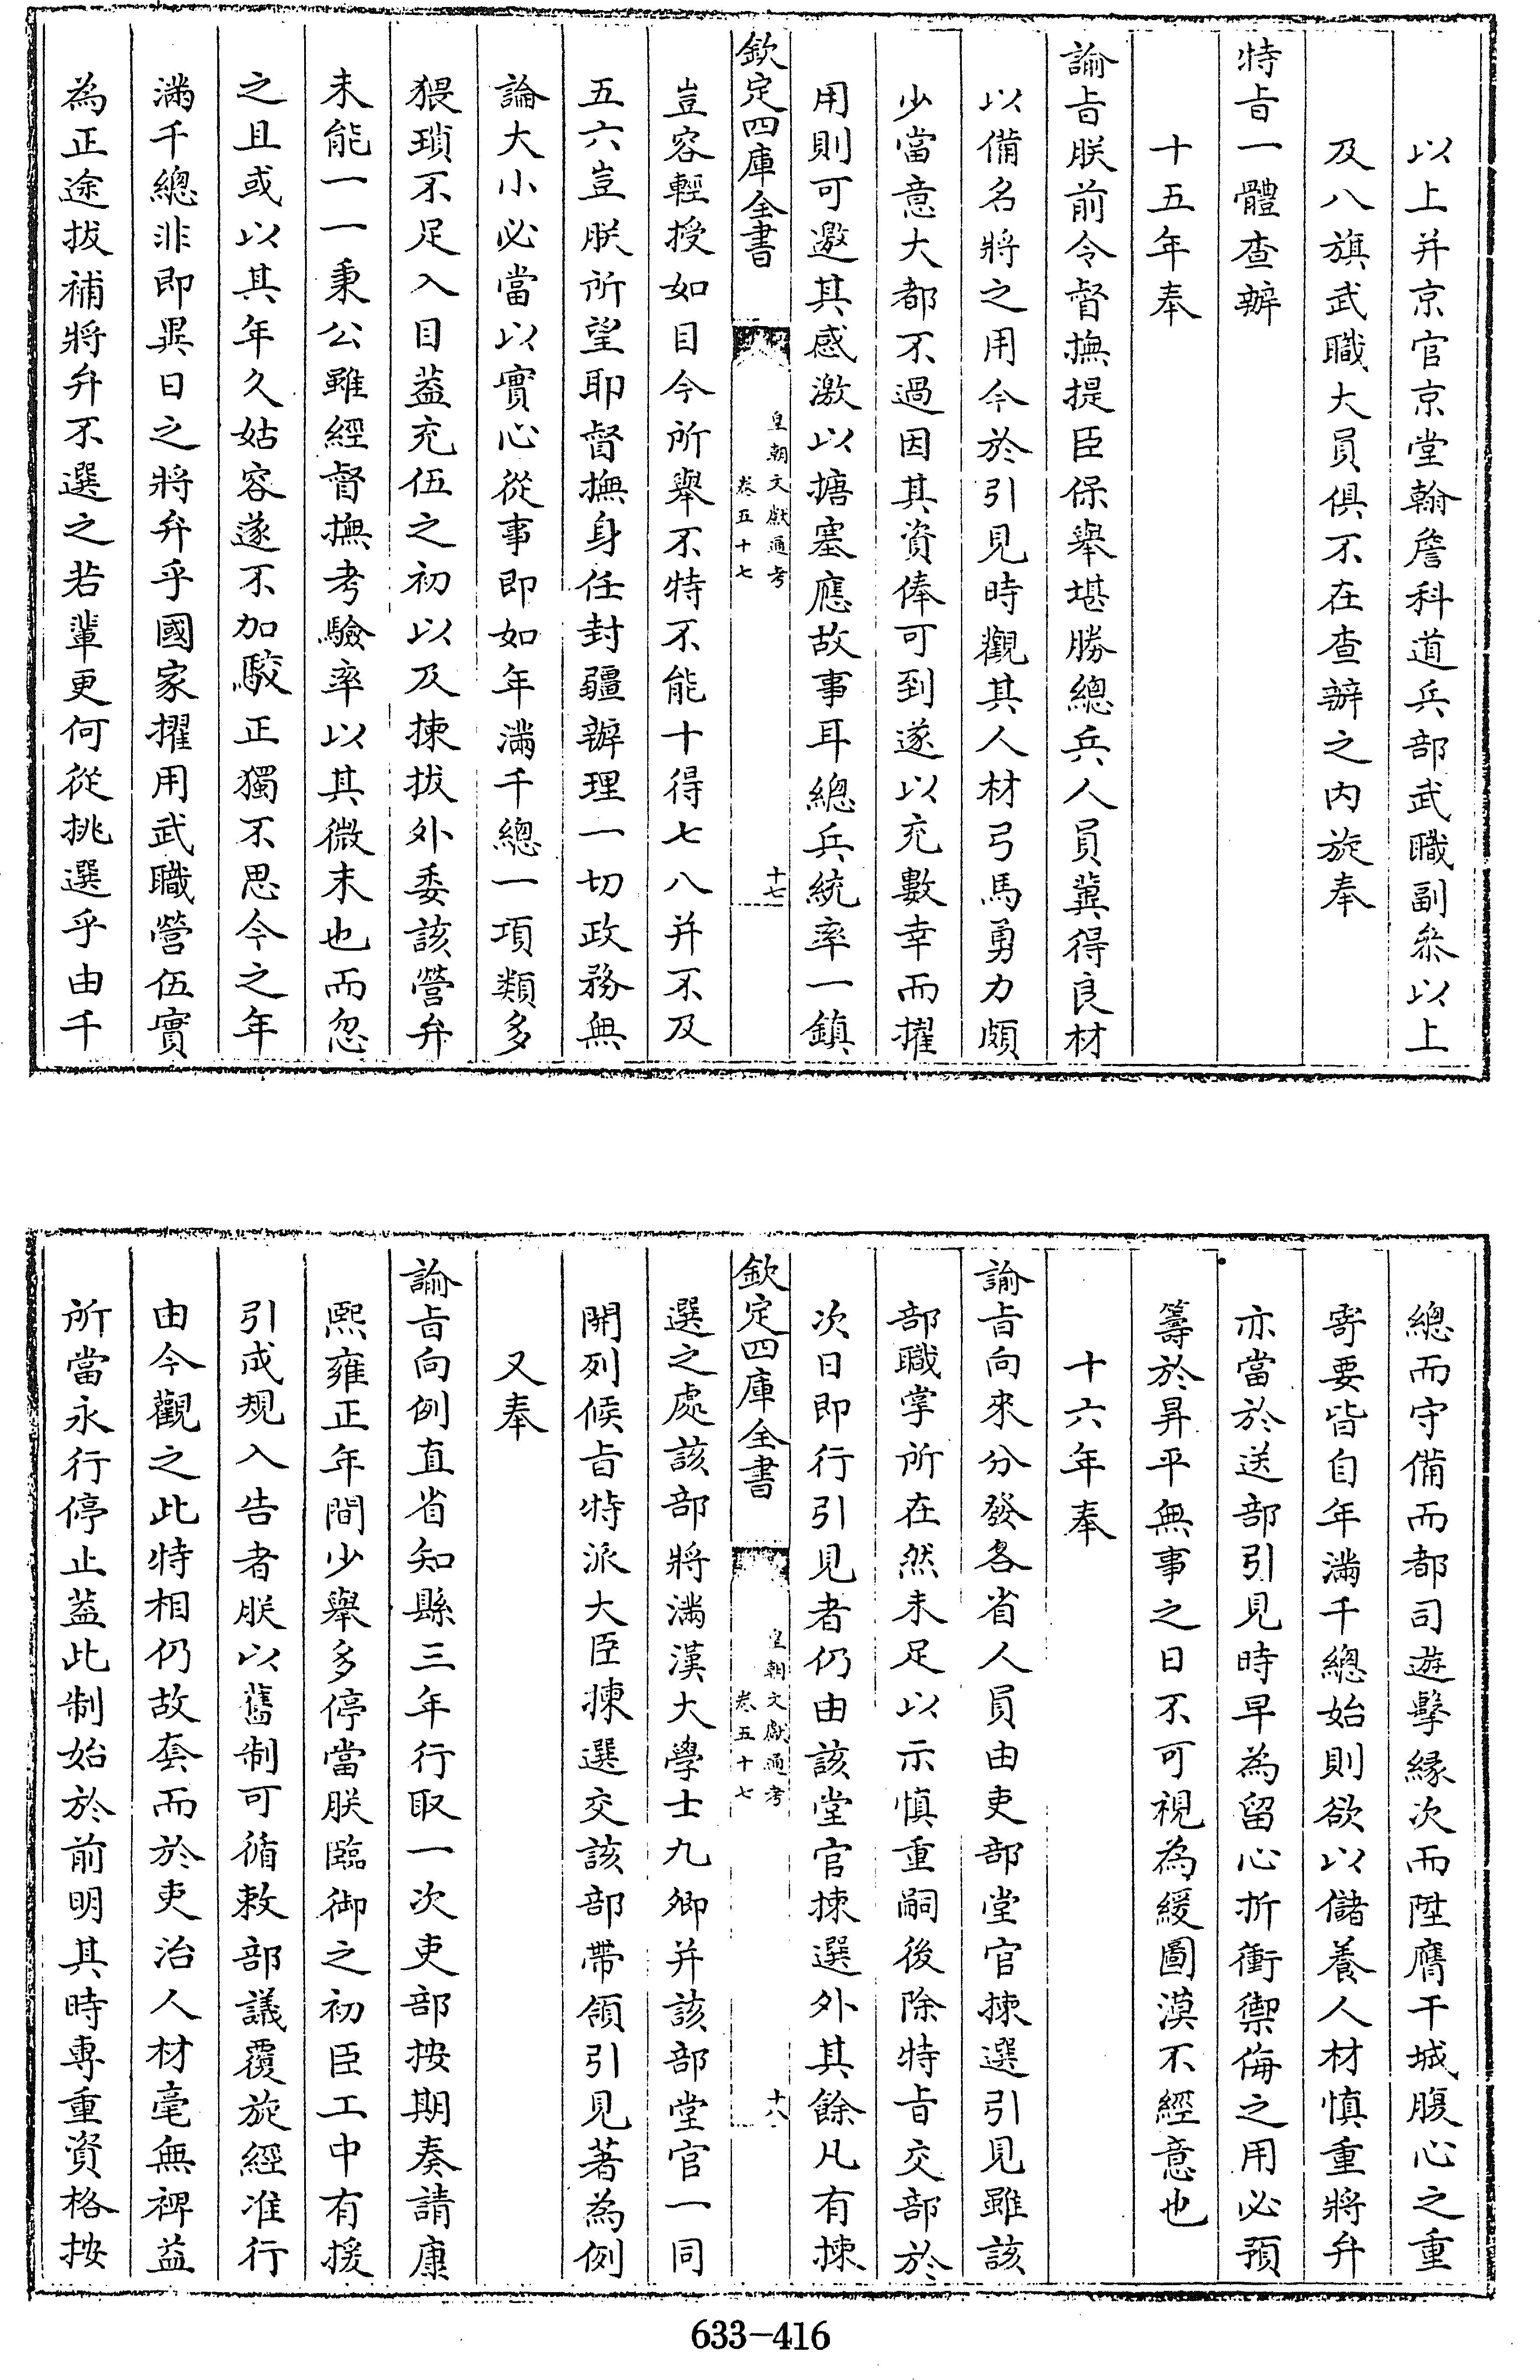 以上并京官京堂翰詹科道兵部武職副叅以上
及八旗武職大員俱不在查辦之内旋奉
特㫖一體查辦
十五年奉
諭㫖朕前令督撫提臣保舉堪勝總兵人員冀得良材
以備名將之用今於引見時觀其人材弓馬勇力頗
少當意大都不過因其資俸可到遂以充數幸而擢
用則可邀其感激以搪塞應故事耳總兵統率一鎮
欽定四庫全書
皇朝文獻通考
卷五十七
十七
豈容輕授如目今所舉不特不能十得七八并不及
五六豈朕所望耶督撫身任封疆辦理一切政務無
論大小必當以實心從事即如年滿千總一項類多
猥瑣不足入目葢充伍之初以及揀拔外委該營弁
未能一一秉公雖經督撫考驗率以其微末也而忽
之且或以其年久姑容遂不加駮正獨不思今之年
滿千總非即異日之將弁乎國家擢用武職營伍實
為正途拔補將弁不選之若輩更何從挑選乎由千
總而守備而都司遊擊縁次而陞膺干城腹心之重
寄要皆自年滿千總始則欲以儲養人材慎重將弁
亦當於送部引見時早為留心折衝禦侮之用必預
籌於昇平無事之日不可視為緩圖漠不經意也
十六年奉
諭㫖向來分發各省人員由吏部堂官揀選引見雖該
部職掌所在然未足以示慎重嗣後除特㫖交部於
次日即行引見者仍由該堂官揀選外其餘凡有揀
欽定四庫全書
皇朝文獻通考
卷五十七
十八
選之處該部將滿漢大學士九卿并該部堂官一同
開列候㫖特派大臣揀選交該部帶領引見著為例
又奉
諭㫖向例直省知縣三年行取一次吏部按期奏請康
熙雍正年間少舉多停當朕臨御之初臣工中有援
引成規入告者朕以舊制可循敕部議覆旋經准行
由今觀之此特相仍故套而於吏治人材毫無裨益
所當永行停止葢此制始於前明其時專重資格按
633-416